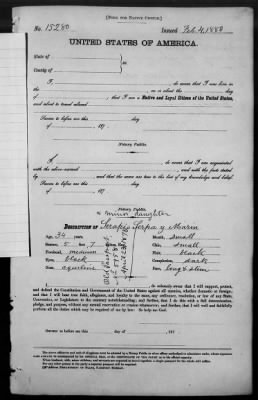 [FORM FOR NATIVE CITIZEN.]
No. 15280 Issued Feb. 4, 1880
UNITED STATES OF AMERICA.
State of
County of
ss.
I, do swear that I was born in the
on or about the day
of , that I am a Native and Loyal Citizen of the United States,
and about to travel abroad
Sworn to before me this day
of 187
Notary Public.
I, do swear that I am acquainted
with the above-named , and with the facts stated
by , and that the same are true to the best of my knowledge and belief.
Sworn to before me this day
of 187
Notary Public.
& minor daughter
DESCRIPTION OF Serapio Serpa y Marin
Age, 34 years small
Stature, 5 7 small
medium black
black dark
aquiline long & thin
Old Passport
do solemnly swear that I will support, protect,
and defend the Constitution and Government of the United States against all enemies, whether domestic or foreign;
and that I will bear true faith, allegiance, and loyalty to the same, any ordinance, resolution, or law of any State,
Convention, or Legislature to the contrary notwithstanding; and further, that I do this with a full determination,
pledge, and purpose, without any mental reservation or evasion whatsoever; and further, that I will well and faithfully
perform all the duties which may be required of me by law: So help me God.
Sworn to before me this day of 187